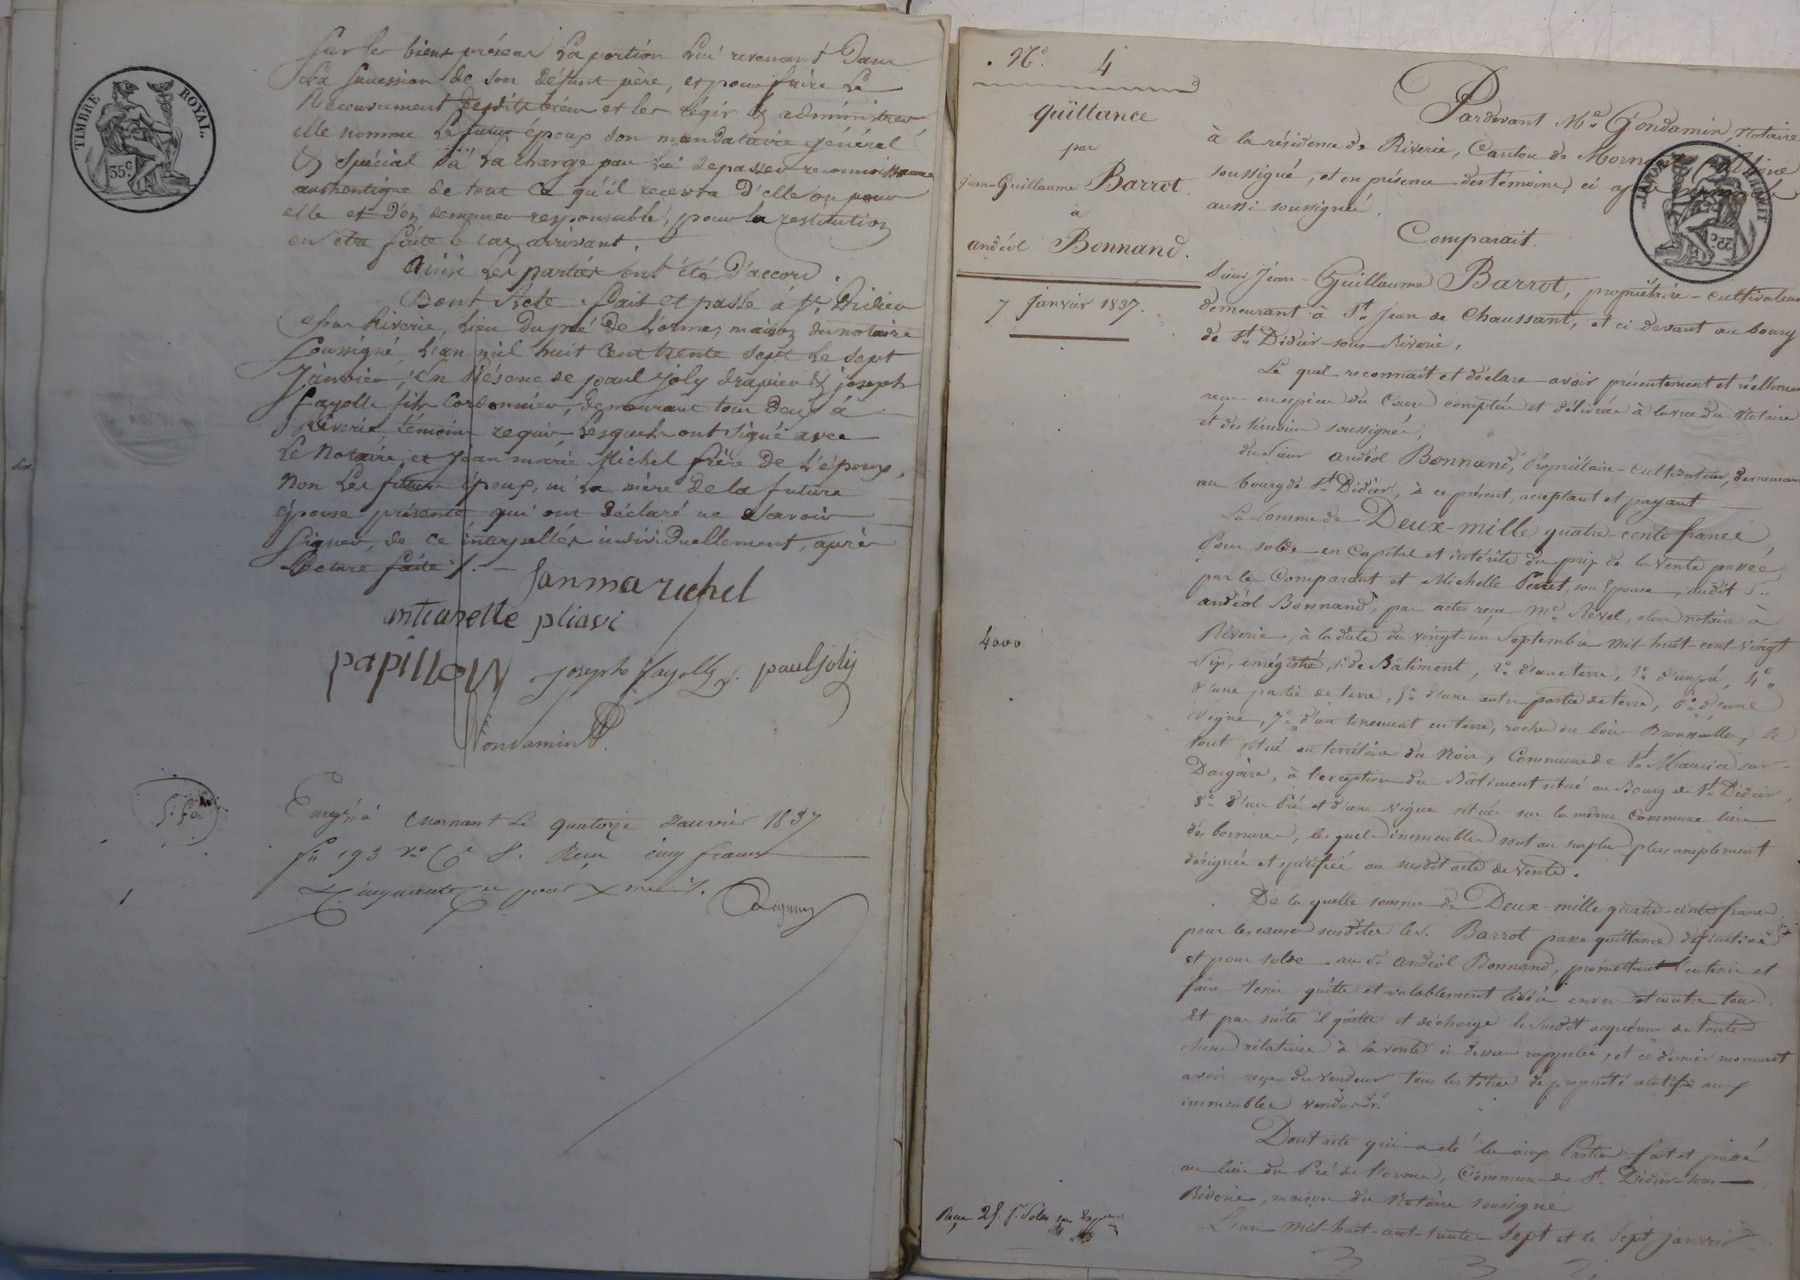 TIMBRE ROYAL.
35c
Sur les biens présens La portion Lui revenant Dans
La Succession de son défunt père, et pour faire Le
Recouvrement desdits biens et les régir & administrer
elle nomme Le futur époux son mandataire général
& Spécial à La charge par Lui de passer reconnaissance
authentique de tout Ce qu'il recevra D'elle ou pour
elle et D'en demeurer responsable, pour La restitution
en être faite le cas arrivant.
Ainsi Les parties ont été D'accord.
Dont Acte. Fait et passé à St. Didier
sous Riverie, Lieu du pré De L'orme, maison du notaire
Soussigné, L'an mil huit Cent trente sept Le sept
Janvier, En Présence de paul Joly drapier & joseph
fayolle fils Cordonnier, demeurant tous Deux à
Riverie témoins requis Lesquels ont signé avec
Le Notaire et Jean marie Michel frère De L'époux,
Non Les futurs époux, ni La mère de la future
épouse présente qui ont Déclaré ne Savoir
Signer, de Ce interpellés individuellement, après
Lecture faite ./.
Janmarichel
papillon joseph fayolle paul joly
Gondamin
5. f. 50
Enregé à Mornant Le quatorze Janvier 1837
fo 193 vo Ce 8. Reçu cinq francs
Cinquante ce pour Xme
No. 4
Quittance
par
Jean-Guillaume Barrot.
à
andéol Bonnand.
7 janvier 1837.
4000
Pardevant Me Gondamin, Notaire
à la résidence de Riverie, Canton de Mornant
soussigné, et en présence des témoins ci après
aussi soussignés,
Comparait.
Sieur Jean-Guillaume Barrot, propriétaire-cultivateur
demeurant à St. Jean de Chaussant, et ci devant au bourg
de St. Didier-sous-Riverie,
Le quel reconnait et déclare avoir présentement et réellement
reçu en espèces du Cours comptées et délivrées à la vue du Notaire
et des témoins soussignés,
du Sieur andéol Bonnand, Propriétaire-cultivateur, demeurant
au bourg de St. Didier, à ce présent, acceptant et payant
La Somme de Deux-mille quatre-cents francs,
Pour solde en Capital et intérêts du prix de la vente passée
par le Comparant et Michelle Piret, son Epouse, audit Sr.
andéol Bonnand, par acte reçu Me. Revel, alors notaire à
Riverie, à la date du vingt-un Septembre mil-huit-cent-vingt
Six, enrégistré, 1o de Bâtiment, 2o. d'une terre, 3o. d'un pré, 4o.
d'une partie de terre, 5o. d'une autre partie de terre, 6o. d'une
vigne, 7o. d'un tènement en terre, roche ou bois Broussailles, le
tout situé au territoire du Noir, Commune de St. Maurice sur-
Dargoire, à l'exception du Bâtiment situé au Bourg de St. Didier,
8o. d'un Pré et d'une vigne située sur la même Commune lieu
des bornures, les quels immeubles sont au surplus plus amplement
désignés et spécifiés au susdit acte de vente.
De la quelle somme de Deux-mille quatre-cents francs
pour les causes susdites le S. Barrot passe quittance définitive
et pour solde au S. andéol Bonnand, promettant l'en tenir et
faire tenir quitte et valablement libéré envers et contre tous.
Et par suite il quitte et décharge le susdit acquéreur de toutes
choses relatives à la vente ci dessus rappelée, et ce dernier reconnait
avoir reçu du Vendeur tous les titres de propriété relatifs aux
immeubles vendus.
Dont acte qui a été lu aux Parties fait et passé
au lieu du Pré de l'orme, Commune de St. Didier-sous-
Riverie, maison du Notaire soussigné
L'an mil-huit-cent-trente-sept et le Sept janvier